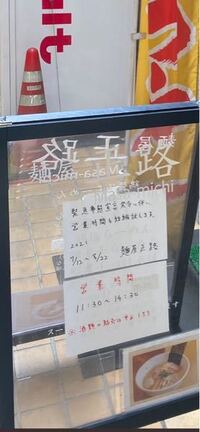 elt
麺屋
正路
michi
緊急事態宣言発令に伴い
営業時間を短縮致します
2021
7/12～8/22 麺屋正路
営業時間
11:30～14:30
※酒類の販売は中止します
スー
です